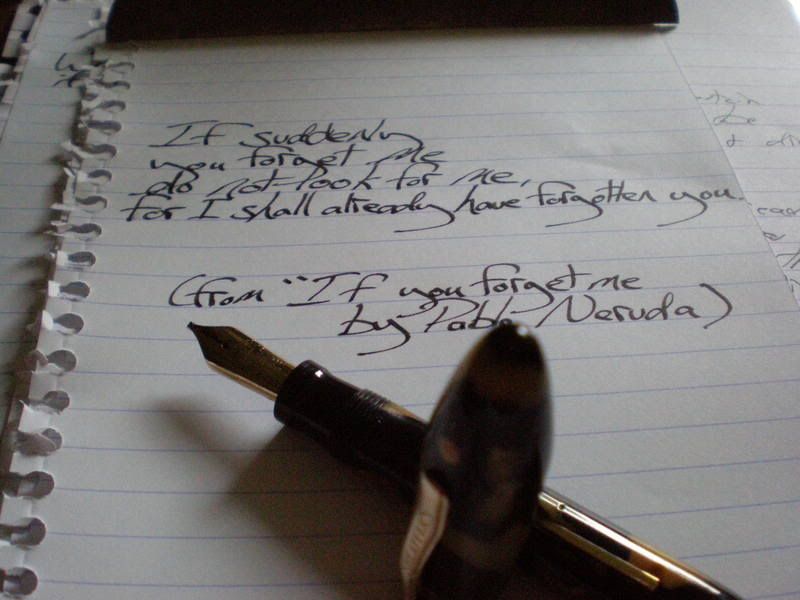 If suddenly
you forget me
do not look for me,
for I shall already have forgotten you.
(from "If you forget me
by Pablo Neruda)